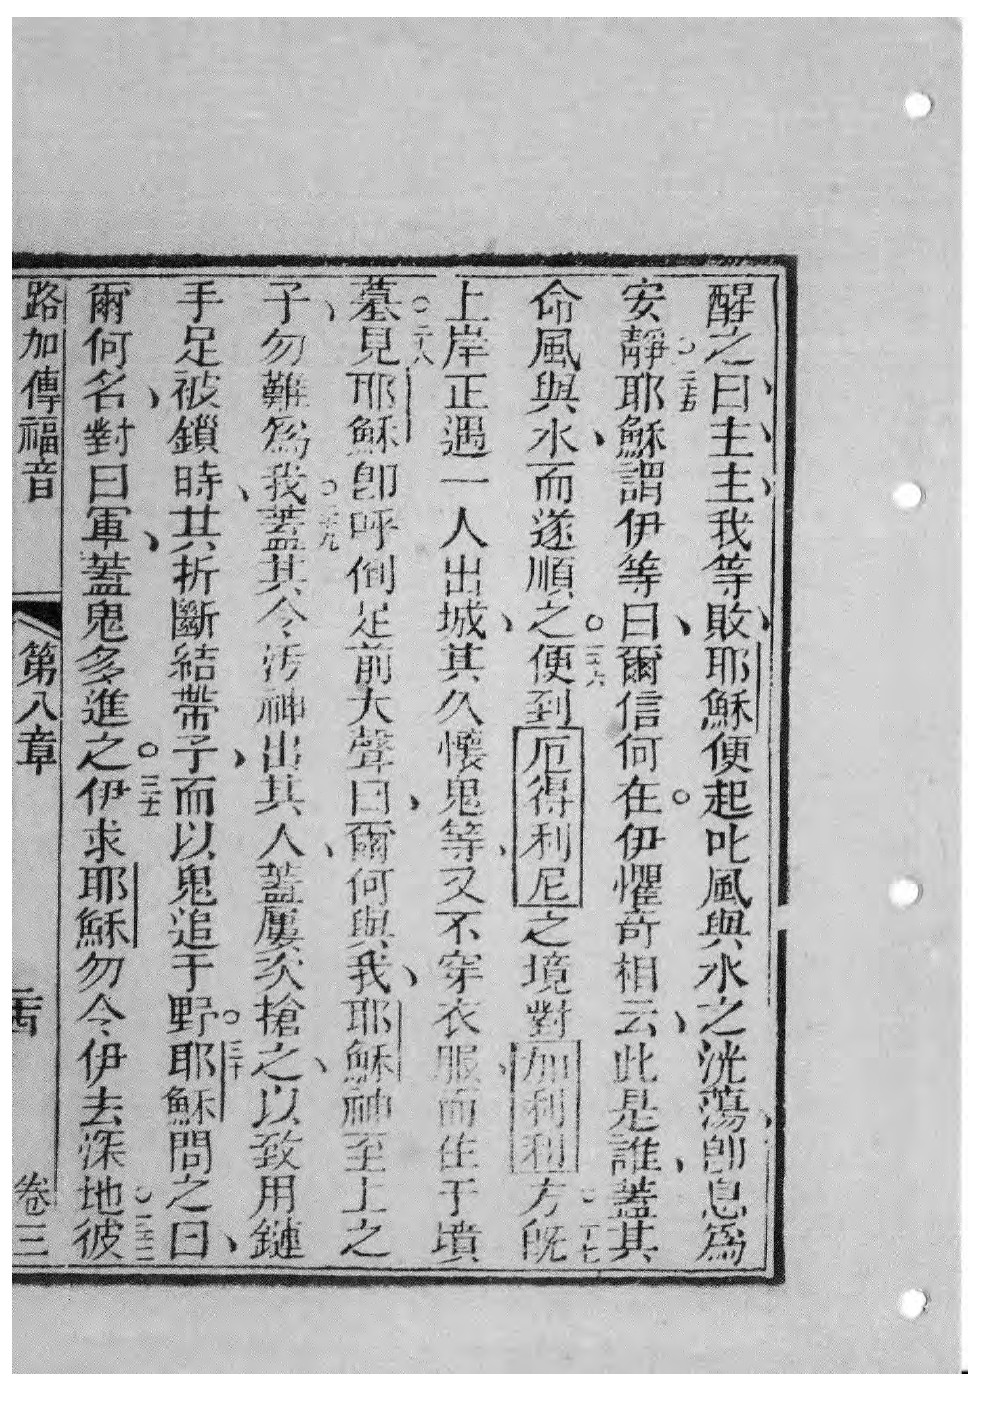 醒之、曰、主、主、我等敗、耶穌便起叱風與水之洸蕩、卽息為
安靜。二十五耶穌謂伊等曰、爾信何在。伊懼奇相云、此是誰、蓋其
命風與水、而遂順之。二十六便到厄得利尼之境對加利利方。二十七既
上岸正遇一人出城、其久懷鬼等、又不穿衣服、而住于墳
墓。二十八見耶穌卽呼倒足前大聲曰、爾何與我、耶穌神至上之
子、勿難為我。二十九蓋其令污神出其人、蓋屢次搶之、以致用鏈
手足被鎖時、其折斷結帶子、而以鬼追于野。三十耶穌問之曰、
爾何名、對曰軍、蓋鬼多進之。三十一伊求耶穌勿令伊去深地。三十二彼
路加傳福音 第八章 二十四 卷三